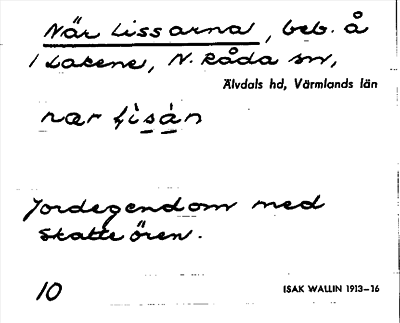 När Lissarna, beb. å
1 Lakene, N. Råda sn,
Älvdals hd, Värmlands län
nær lìsàn
Jordegendom med
skatteören.
10
ISAK WALLIN 1913–16